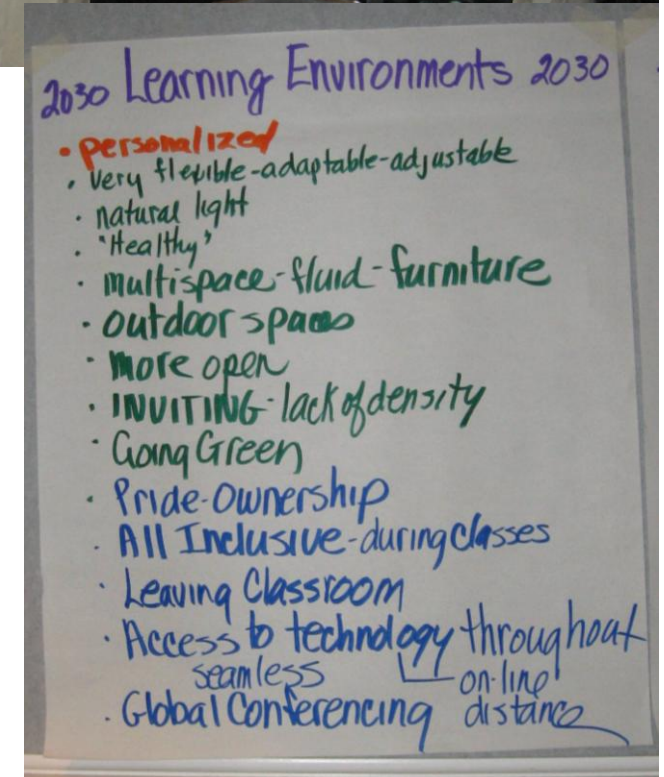 2030 Learning Environments 2030
• personalized
• very flexible-adaptable-adjustable
• natural light
• "Healthy"
• multispace-fluid-furniture
• outdoor spaces
• more open
• INVITING-lack of density
• Going Green
• Pride-Ownership
• All Inclusive-during classes
• Leaving Classroom
• Access to technology throughout
seamless on-line
• Global Conferencing distance